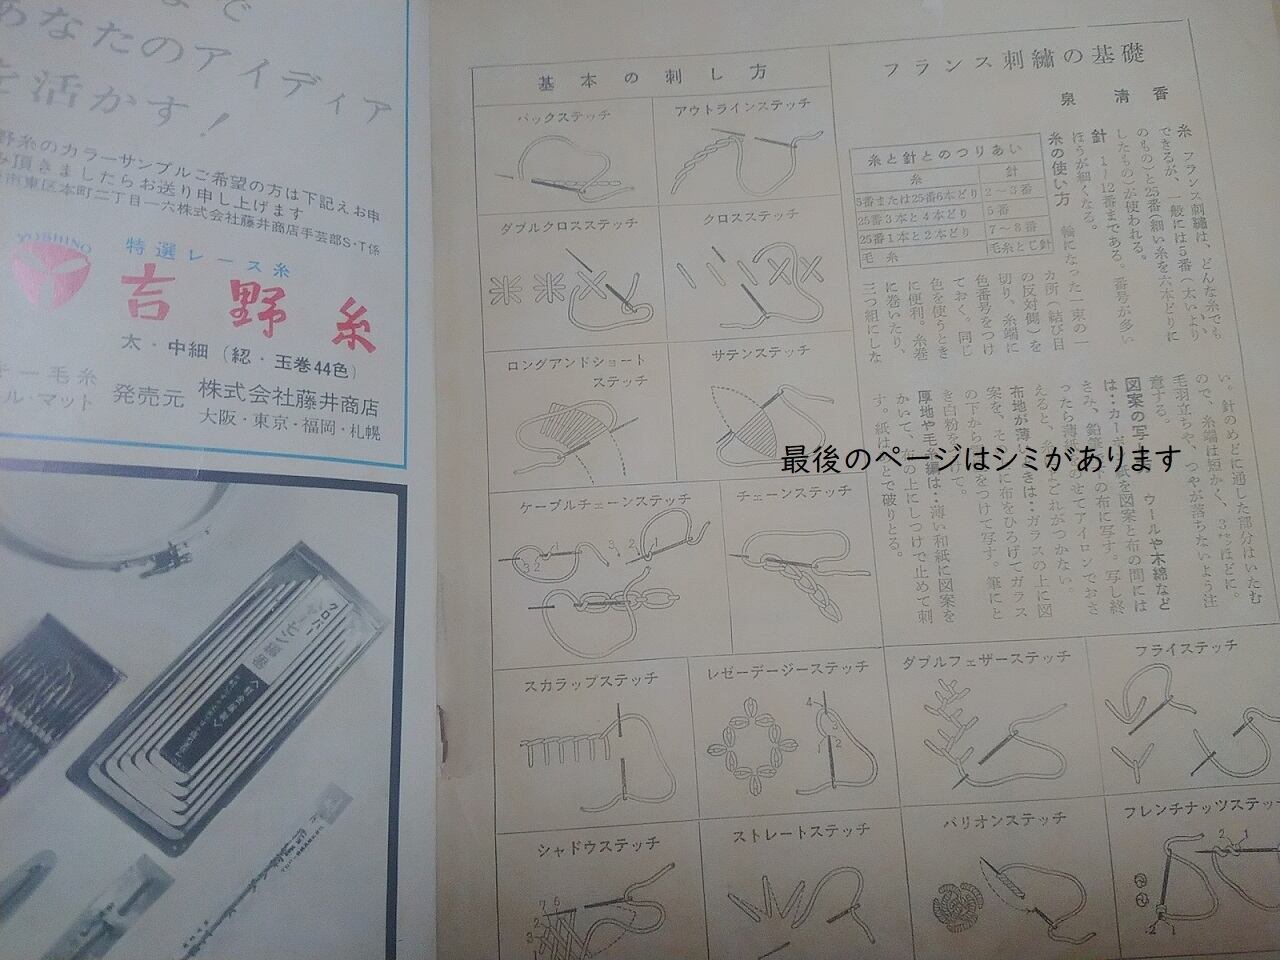 あなたのアイディア
を活かす！
野糸のカラーサンプルご希望の方は下記えお申
み頂きましたらお送り申し上げます
市東区本町二丁目一六株式会社藤井商店手芸部S・T係
YOSHINO
特選レース糸
吉野糸
太・中細（綛・玉巻44色）
キー毛糸
ル・マット
発売元
株式会社藤井商店
大阪・東京・福岡・札幌
クロバー
フランス刺繍の基礎
香清泉
糸 フランス刺繍は、どんな糸でも
できるが、一般には5番（太いより
のもの）と25番（細い糸を六本どりに
したもの）が使われる。
針 1～12番まである。番号が多い
ほうが細くなる。
糸の使い方 輪になった一束の一
カ所（結び目
の反対側）を
切り、糸端に
色番号をつけ
ておく。同じ
色を使うとき
に便利。糸巻
に巻いたり、
三つ組にした
糸と針とのつりあい
糸 針
5番または25番6本どり 2～3番
25番3本と4本どり 5番
25番1本と2本どり 7～8番
毛糸 毛糸とじ針
い。針のめどに通した部分はいたむ
ので、糸端は短かく、3㌢ほどに。
毛羽立ちや、つやが落ちないよう注
意する。
図案の写し ウールや木綿など
は‥カーボン紙を図案と布の間には
さみ、鉛筆 の布に写す。写し終
ったら薄紙 のせてアイロンでおさ
えると、糸 よごれがつかない。
布地が薄い きは‥ガラスの上に図
案を、その に布をひろげてガラス
の下から をつけて写す。筆にと
き白粉を けて。
厚地や毛糸編は‥薄い和紙に図案を
かいて、布の上にしつけで止めて刺
す。紙は とで破りとる。
最後のページはシミがあります
基本の刺し方
バックステッチ
アウトラインステッチ
ダブルクロスステッチ
クロスステッチ
ロングアンドショート
ステッチ
サテンステッチ
ケーブルチェーンステッチ
チェーンステッチ
スカラップステッチ
レゼーデージーステッチ
ダブルフェザーステッチ
フライステッチ
シャドウステッチ
ストレートステッチ
バリオンステッチ
フレンチナッツステッ